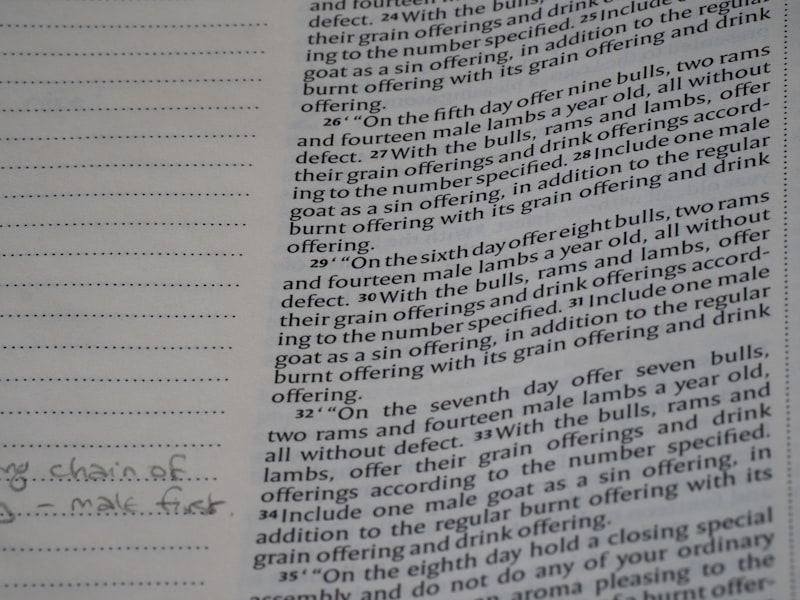 and fourteen
defect. 24 With the bulls,
their grain offerings and drink
ing to the number specified. 25 Include
goat as a sin offering, in addition to the regular
burnt offering with its grain offering and drink
offering.
26 ‘ “On the fifth day offer nine bulls, two rams
and fourteen male lambs a year old, all without
defect. 27 With the bulls, rams and lambs, offer
their grain offerings and drink offerings accord-
ing to the number specified. 28 Include one male
goat as a sin offering, in addition to the regular
burnt offering with its grain offering and drink
offering.
29 ‘ “On the sixth day offer eight bulls, two rams
and fourteen male lambs a year old, all without
defect. 30 With the bulls, rams and lambs, offer
their grain offerings and drink offerings accord-
ing to the number specified. 31 Include one male
goat as a sin offering, in addition to the regular
burnt offering with its grain offering and drink
offering.
32 ‘ “On the seventh day offer seven bulls,
two rams and fourteen male lambs a year old,
all without defect. 33 With the bulls, rams and
lambs, offer their grain offerings and drink
offerings according to the number specified.
34 Include one male goat as a sin offering, in
addition to the regular burnt offering with its
grain offering and drink offering.
35 ‘ “On the eighth day hold a closing special
assembly and do not do any of your ordinary
aroma pleasing to the
burnt offer-
chain of
– male first.